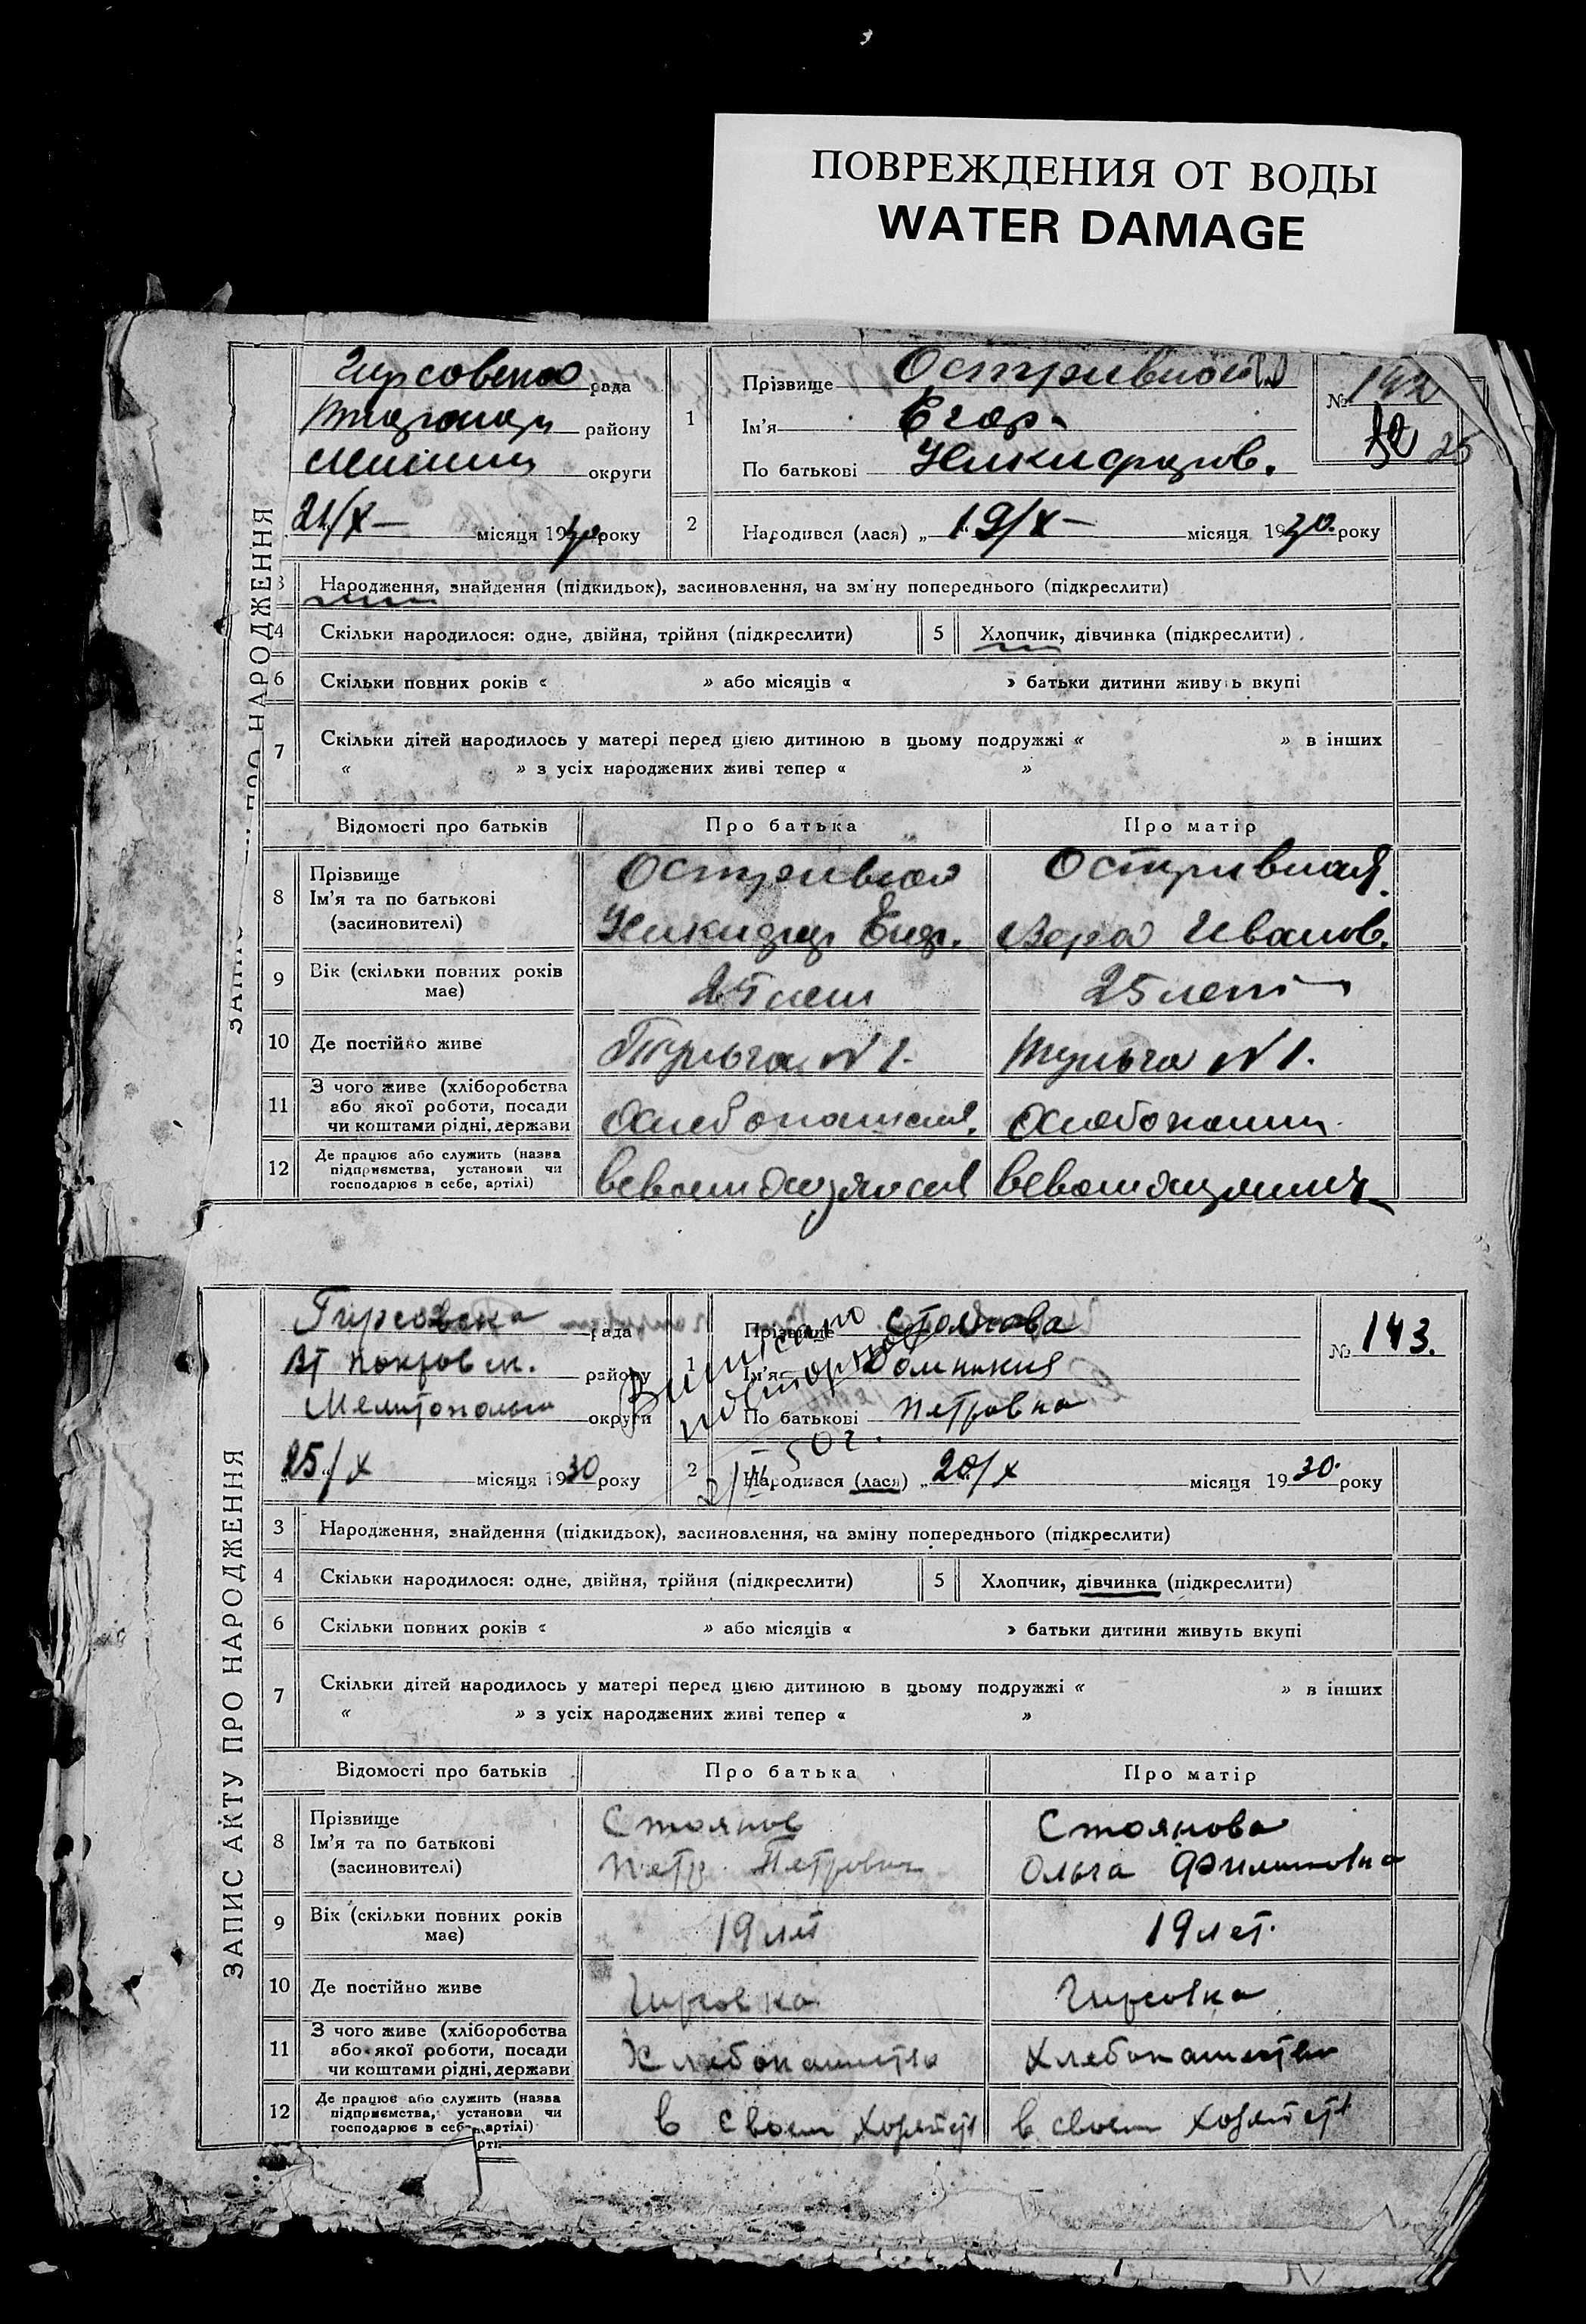 ПОВРЕЖДЕНИЯ ОТ ВОДЫ
WATER DAMAGE
ЗАПИС АКТУ ПРО НАРОДЖЕННЯ
рада
району
округи
21/X— місяця 19 року
1 Прізвище Остривной
Ім'я Егор
По батькові Никифоров.
№ 142
25
2 Народився (лася) „ 19/X— місяця 1930. року
3 Народження, знайдення (підкидьок), засиновлення, на зміну попереднього (підкреслити)
4 Скільки народилося: одне, двійня, трійня (підкреслити) 5 Хлопчик, дівчинка (підкреслити)
6 Скільки повних років « » або місяців « » батьки дитини живуть вкупі
7 Скільки дітей народилось у матері перед цією дитиною в цьому подружжі « » в інших
« » з усіх народжених живі тепер « »
Відомості про батьків Про батька Про матір
8 Прізвище
Ім'я та по батькові
(засиновителі)
Остривной Остривная
Вера Иванов.
9 Вік (скільки повних років
має)
25 лет
10 Де постійно живе Тульга N 1. Тульга N 1.
11 З чого живе (хліборобства
або якої роботи, посади
чи коштами рідні, держави
12 Де працює або служить (назва
підприємства, установи чи
господарює в себе, артілі)
ЗАПИС АКТУ ПРО НАРОДЖЕННЯ
Гирсовска рада
Вт Покровск. району
Мелитопольск округи
25/X місяця 1930 року
Виписано
повторное
50 г.
1 Прізвище Стоянова
Ім'я Домникия
По батькові Петровна
№ 143.
2 Народився (лася) „ 20/X місяця 1930. року
3 Народження, знайдення (підкидьок), засиновлення, на зміну попереднього (підкреслити)
4 Скільки народилося: одне, двійня, трійня (підкреслити) 5 Хлопчик, дівчинка (підкреслити)
6 Скільки повних років « » або місяців « » батьки дитини живуть вкупі
7 Скільки дітей народилось у матері перед цією дитиною в цьому подружжі « » в інших
« » з усіх народжених живі тепер « »
Відомості про батьків Про батька Про матір
8 Прізвище
Ім'я та по батькові
(засиновителі)
Стоянов Стоянова
Петр Петрович Ольга Филиповна
9 Вік (скільки повних років
має)
19 лет 19 лет.
10 Де постійно живе Гирсовка Гирсовка
11 З чого живе (хліборобства
або якої роботи, посади
чи коштами рідні, держави
Хлебопашество Хлебопашество
12 Де працює або служить (назва
підприємства, установи чи
господарює в себе, артілі)
в своем хозяйст в своем хозяйст